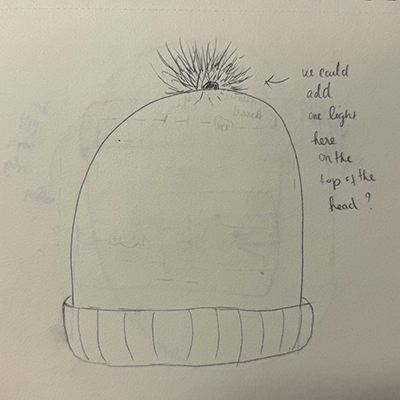 we could
add
one light
here
on the
top of the
head ?